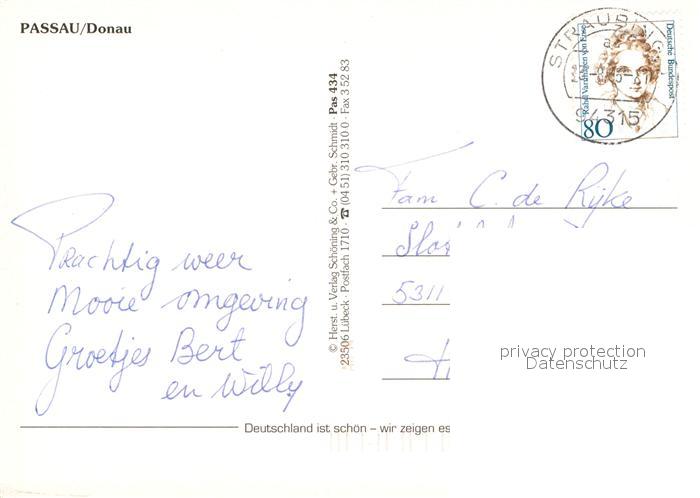 PASSAU/Donau
STRAUBING
94315
Deutsche Bundespost
Rahel Varnhagen von Ense
80
© Herst. u. Verlag Schöning & Co. + Gebr. Schmidt · Pas 434
23506 Lübeck · Postfach 1710 · ☎ (04 51) 310 310 0 · Fax 3 52 83
Fam C. de Rijke
5311
Prachtig weer
Mooie omgeving
Groetjes Bert
en Willy
privacy protection
Datenschutz
Deutschland ist schön – wir zeigen es